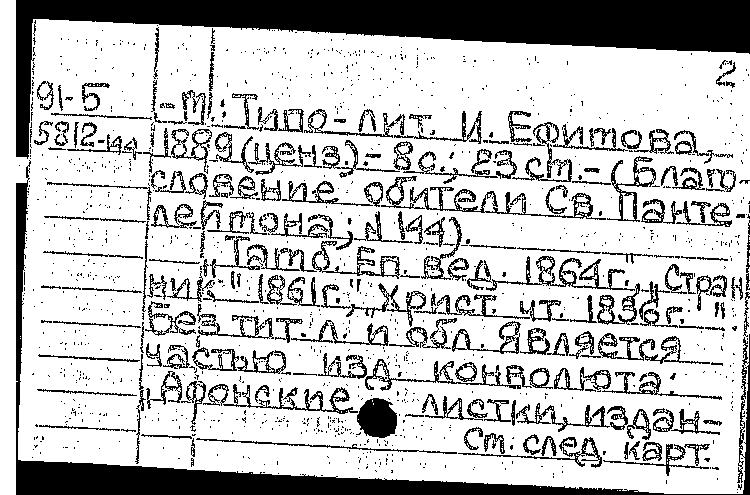 2
91-Б
5812-144
-М.: Типо-лит. И. Ефимова,
1889 (ценз.).- 8 с.; 23 см.- (Благо-
словение обители Св. Панте-
леймона; N 144).
"Тамб. Еп. вед. 1864 г.", "Стран
ник" 1861 г.", Христ. чт. 1836 г. "
Без тит. л. и обл. Является
частью изд. конволюта:
"Афонские листки, издан-
См. след. карт.